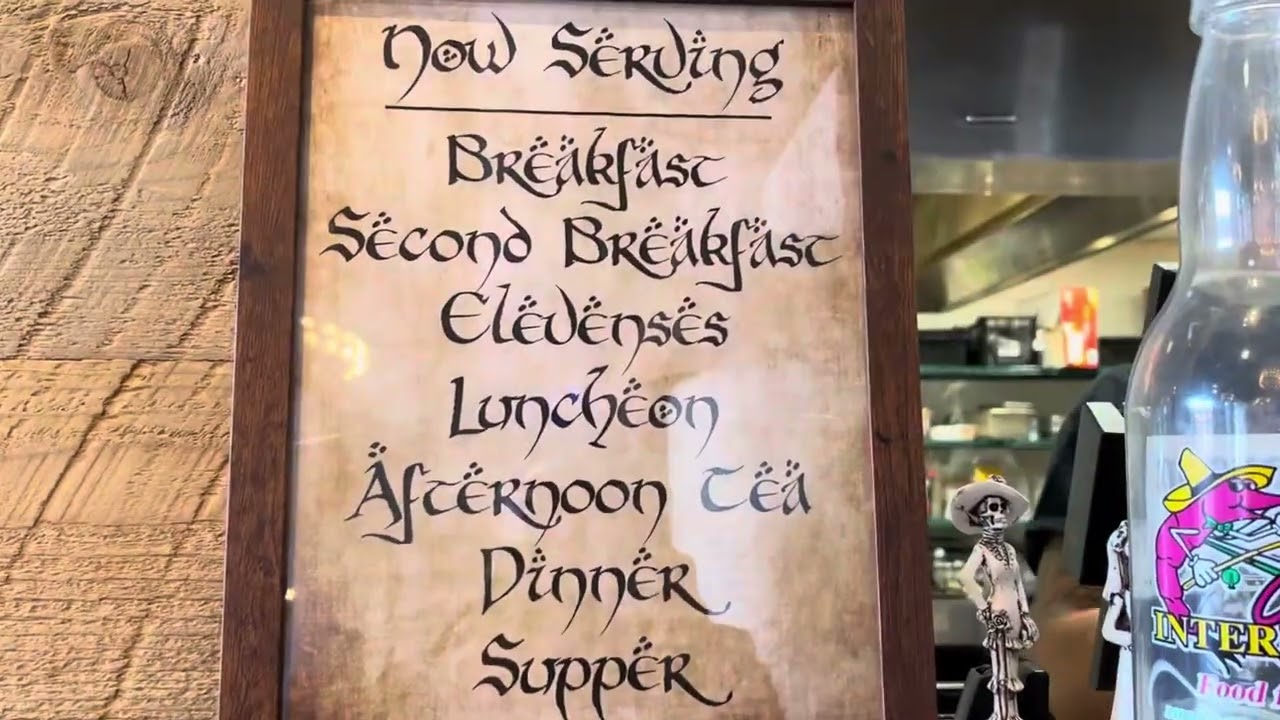 Now Serving
Breakfast
Second Breakfast
Elevenses
Luncheon
Afternoon Tea
Dinner
Supper
INTER
Food